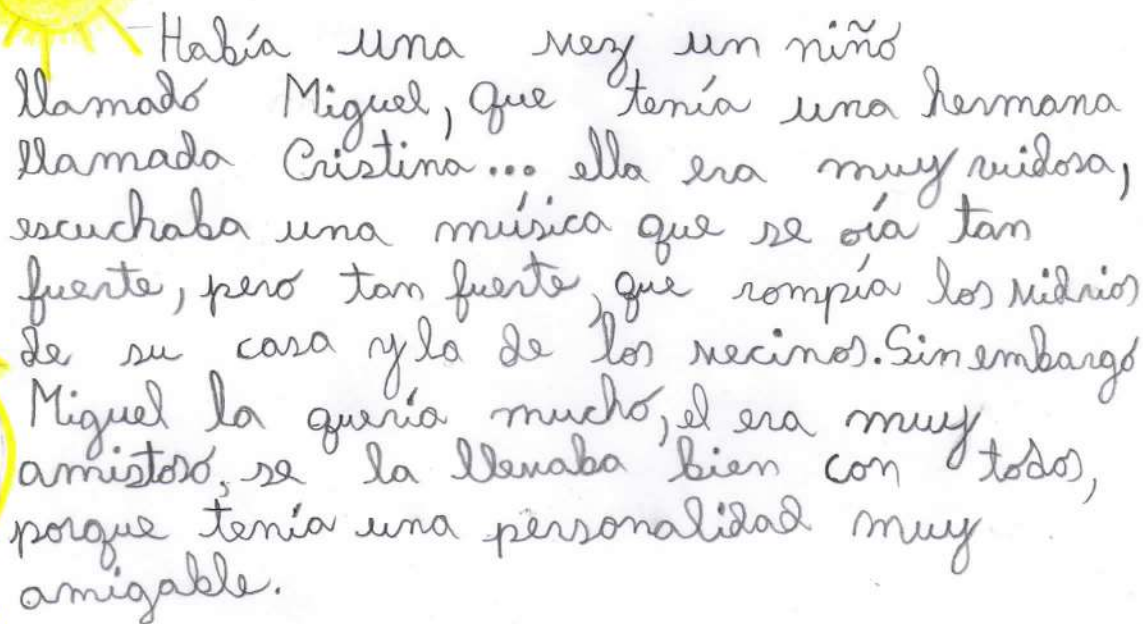 -Había una vez un niño
llamado Miguel, que tenía una hermana
llamada Cristina... ella era muy ruidosa,
escuchaba una música que se oía tan
fuerte, pero tan fuerte, que rompía los vidrios
de su casa y la de los vecinos. Sin embargo
Miguel la quería mucho, el era muy
amistoso, se la llevaba bien con todos,
porque tenía una personalidad muy
amigable.